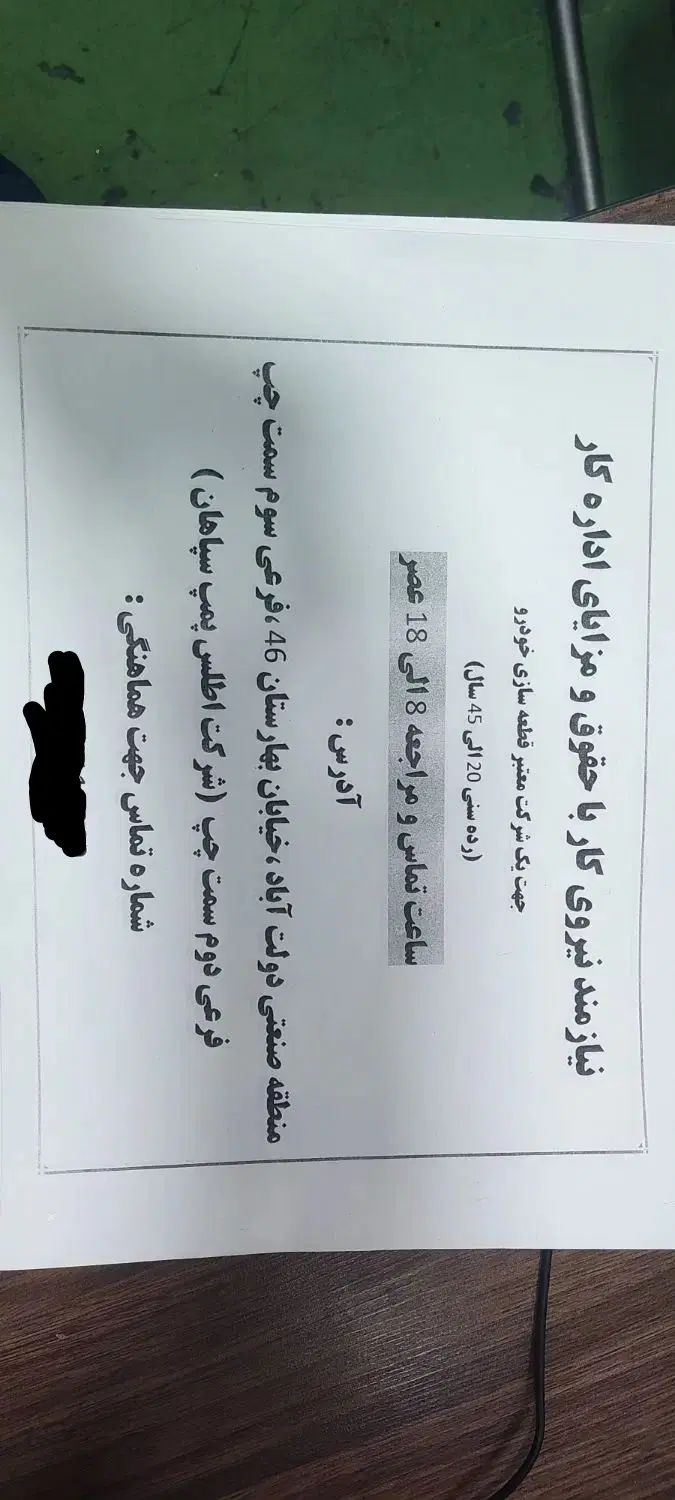 نیازمند نیروی کار با حقوق و مزایای اداره کار
جهت یک شرکت معتبر قطعه سازی خودرو
(رده سنی 20 الی 45 سال)
ساعت تماس و مراجعه 8 الی 18 عصر
آدرس :
منطقه صنعتی دولت آباد ،خیابان بهارستان 46 ،فرعی سوم سمت چپ
فرعی دوم سمت چپ (شرکت اطلس پمپ سپاهان )
شماره تماس جهت هماهنگی :